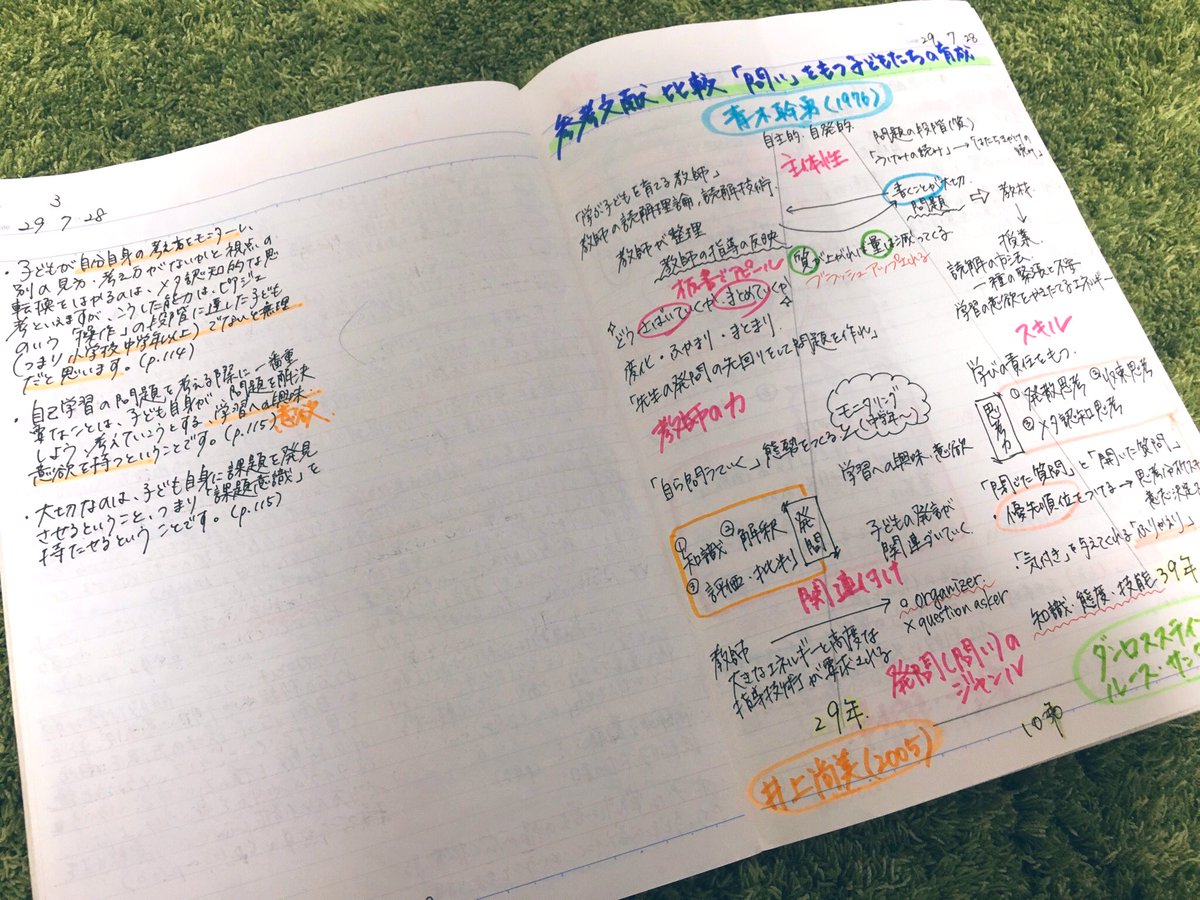 3
29 7 28
・子どもが自分自身の考え方をモニターし、
別の見方・考え方がないかと視点の
転換をはかるのは、メタ認知的な思
考といえますが、こうした能力は、ピアジェ
のいう「操作」の段階に達した子ども
(つまり小学校中学年以上)でないと無理
だと思います。(p.114)
・自己学習の問題を考える際に一番重
要なことは、子ども自身が、問題を解決
しよう、考えていこうとする、学習への興味
意欲を持つということです。(p.115)
意欲
・大切なのは、子ども自身に課題を発見
させるということ、つまり「課題意識」を
持たせるということです。(p.115)
29 7 28
参考文献 比較 「問い」をもつ子どもたちの育成
青木幹勇(1976)
自主的・自発的
主体性
問題の段階(質)
「学が子どもを育てる教師」
教師の読解理論、読解技術
教師が整理
教師の指導の反映
書くことが大切
問題 ⇒ 教材
↓
授業
質が上がれば量は減ってくる
ブラッシュアップされる
板書でアピール
どうさばいていくか、まとめていくか
変化・ふかまり・まとまり
「先生の発問の先回りをして問題を作れ」
教師の力
読解の方法
一種の緊張と不安
学習の意欲をかきたてるエネルギー
スキル
学びの責任をもつ
モニタリング
(中学年〜)
思考力
①発散思考 ②収束思考
③メタ認知思考
「自ら問うていく」態勢をつくる
学習への興味・意欲
「閉じた質問」と「開いた質問」
・優先順位をつける→
①知識 ②解釈
③評価・批判
発問
子どもの発言が
関連づいていく
関連付け
「気付き」を与えてくれる「ふりかえり」
知識・態度・技能
39年
教師
○ organizer
× question asker
大きなエネルギーと高度な
指導技術が要求される
発問(問い)の
ジャンル
29年
10年
井上尚美(2005)
ダン・ロススティ
ルース・サン